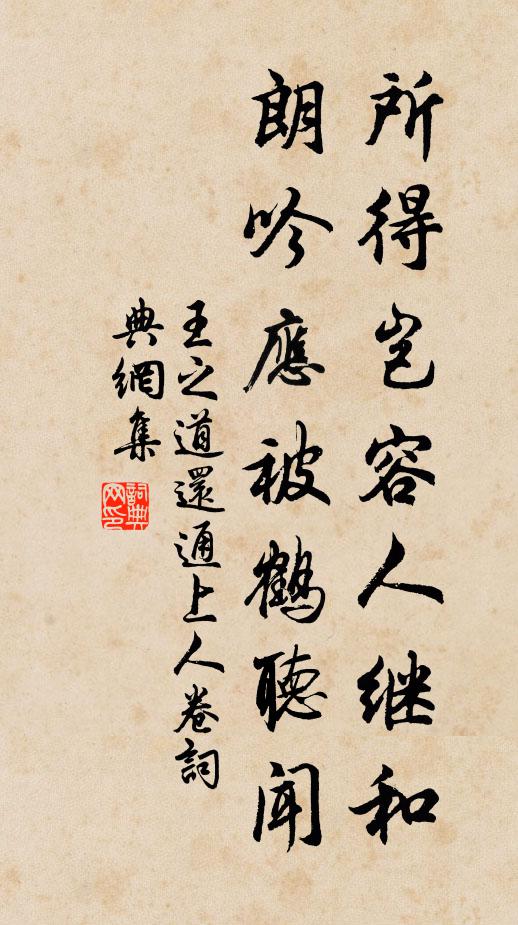 所得岂容人继和
朗吟應被鶴聽聞
王之道還通上人卷詞
典網集
詞典
网印